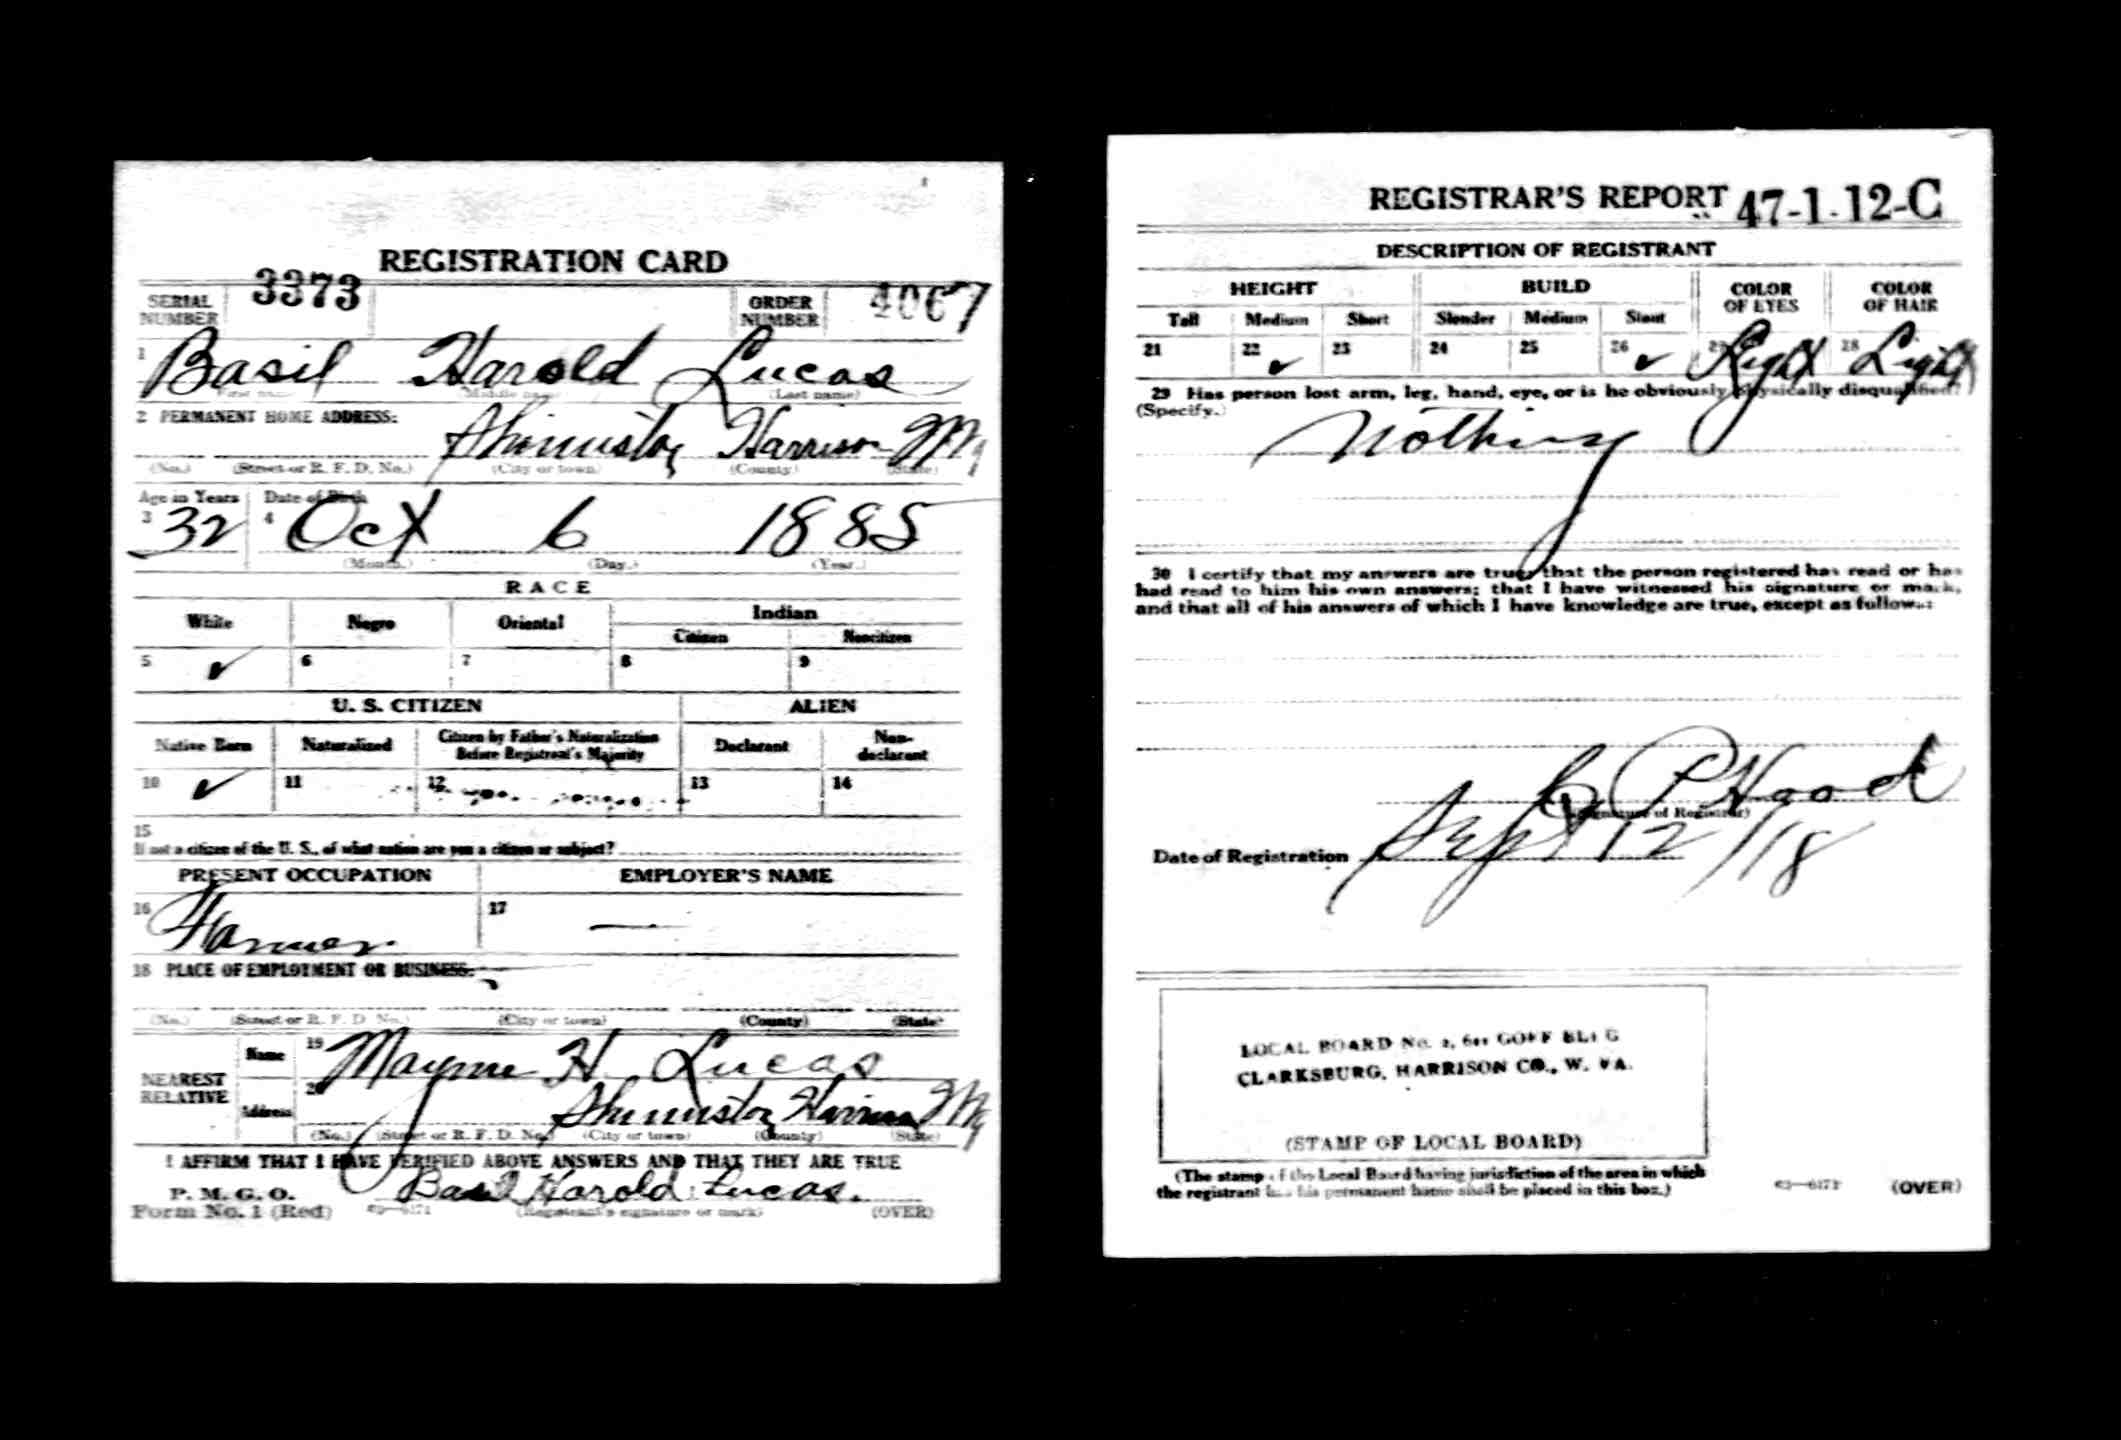 REGISTRATION CARD
SERIAL NUMBER 3373 ORDER NUMBER 4067
1 Basil Harold Lucas
(First name) (Middle name) (Last name)
2 PERMANENT HOME ADDRESS:
Shinnston Harrison
(No.) (Street or R. F. D. No.) (City or town) (County) (State)
Age in Years Date of Birth
3 32 4 Oct 6 1885
(Month.) (Day.) (Year.)
RACE
White Negro Oriental Indian
Citizen Noncitizen
5 ✓ 6 7 8 9
U. S. CITIZEN ALIEN
Native Born Naturalized Citizen by Father's Naturalization Before Registrant's Majority Declarant Non-declarant
10 ✓ 11 12 13 14
15
If not a citizen of the U. S., of what nation are you a citizen or subject?
PRESENT OCCUPATION EMPLOYER'S NAME
16 Farmer 17 —
18 PLACE OF EMPLOYMENT OR BUSINESS:
(No.) (Street or R. F. D. No.) (City or town) (County) (State)
NEAREST RELATIVE Name 19 Mayme H Lucas
Address 20 Shinnston Harrison
(No.) (Street or R. F. D. No.) (City or town) (County) (State)
I AFFIRM THAT I HAVE VERIFIED ABOVE ANSWERS AND THAT THEY ARE TRUE
P. M. G. O.
Form No. 1 (Red) 03—6171 Basil Harold Lucas.
(Registrant's signature or mark) (OVER)
REGISTRAR'S REPORT 47-1-12-C
DESCRIPTION OF REGISTRANT
HEIGHT BUILD COLOR OF EYES COLOR OF HAIR
Tall Medium Short Slender Medium Stout
21 22 ✓ 23 24 25 26 ✓ 27 Light 28 Light
29 Has person lost arm, leg, hand, eye, or is he obviously physically disqualified?
(Specify.)
Nothing
30 I certify that my answers are true; that the person registered has read or has
had read to him his own answers; that I have witnessed his signature or mark,
and that all of his answers of which I have knowledge are true, except as follows:
P Hood
(Signature of Registrar)
Date of Registration Sept 12/18
LOCAL BOARD No. GOFF BLDG
CLARKSBURG, HARRISON CO., W. VA.
(STAMP OF LOCAL BOARD)
(The stamp of the Local Board having jurisdiction of the area in which
the registrant has his permanent home shall be placed in this box.)
03—6171 (OVER)